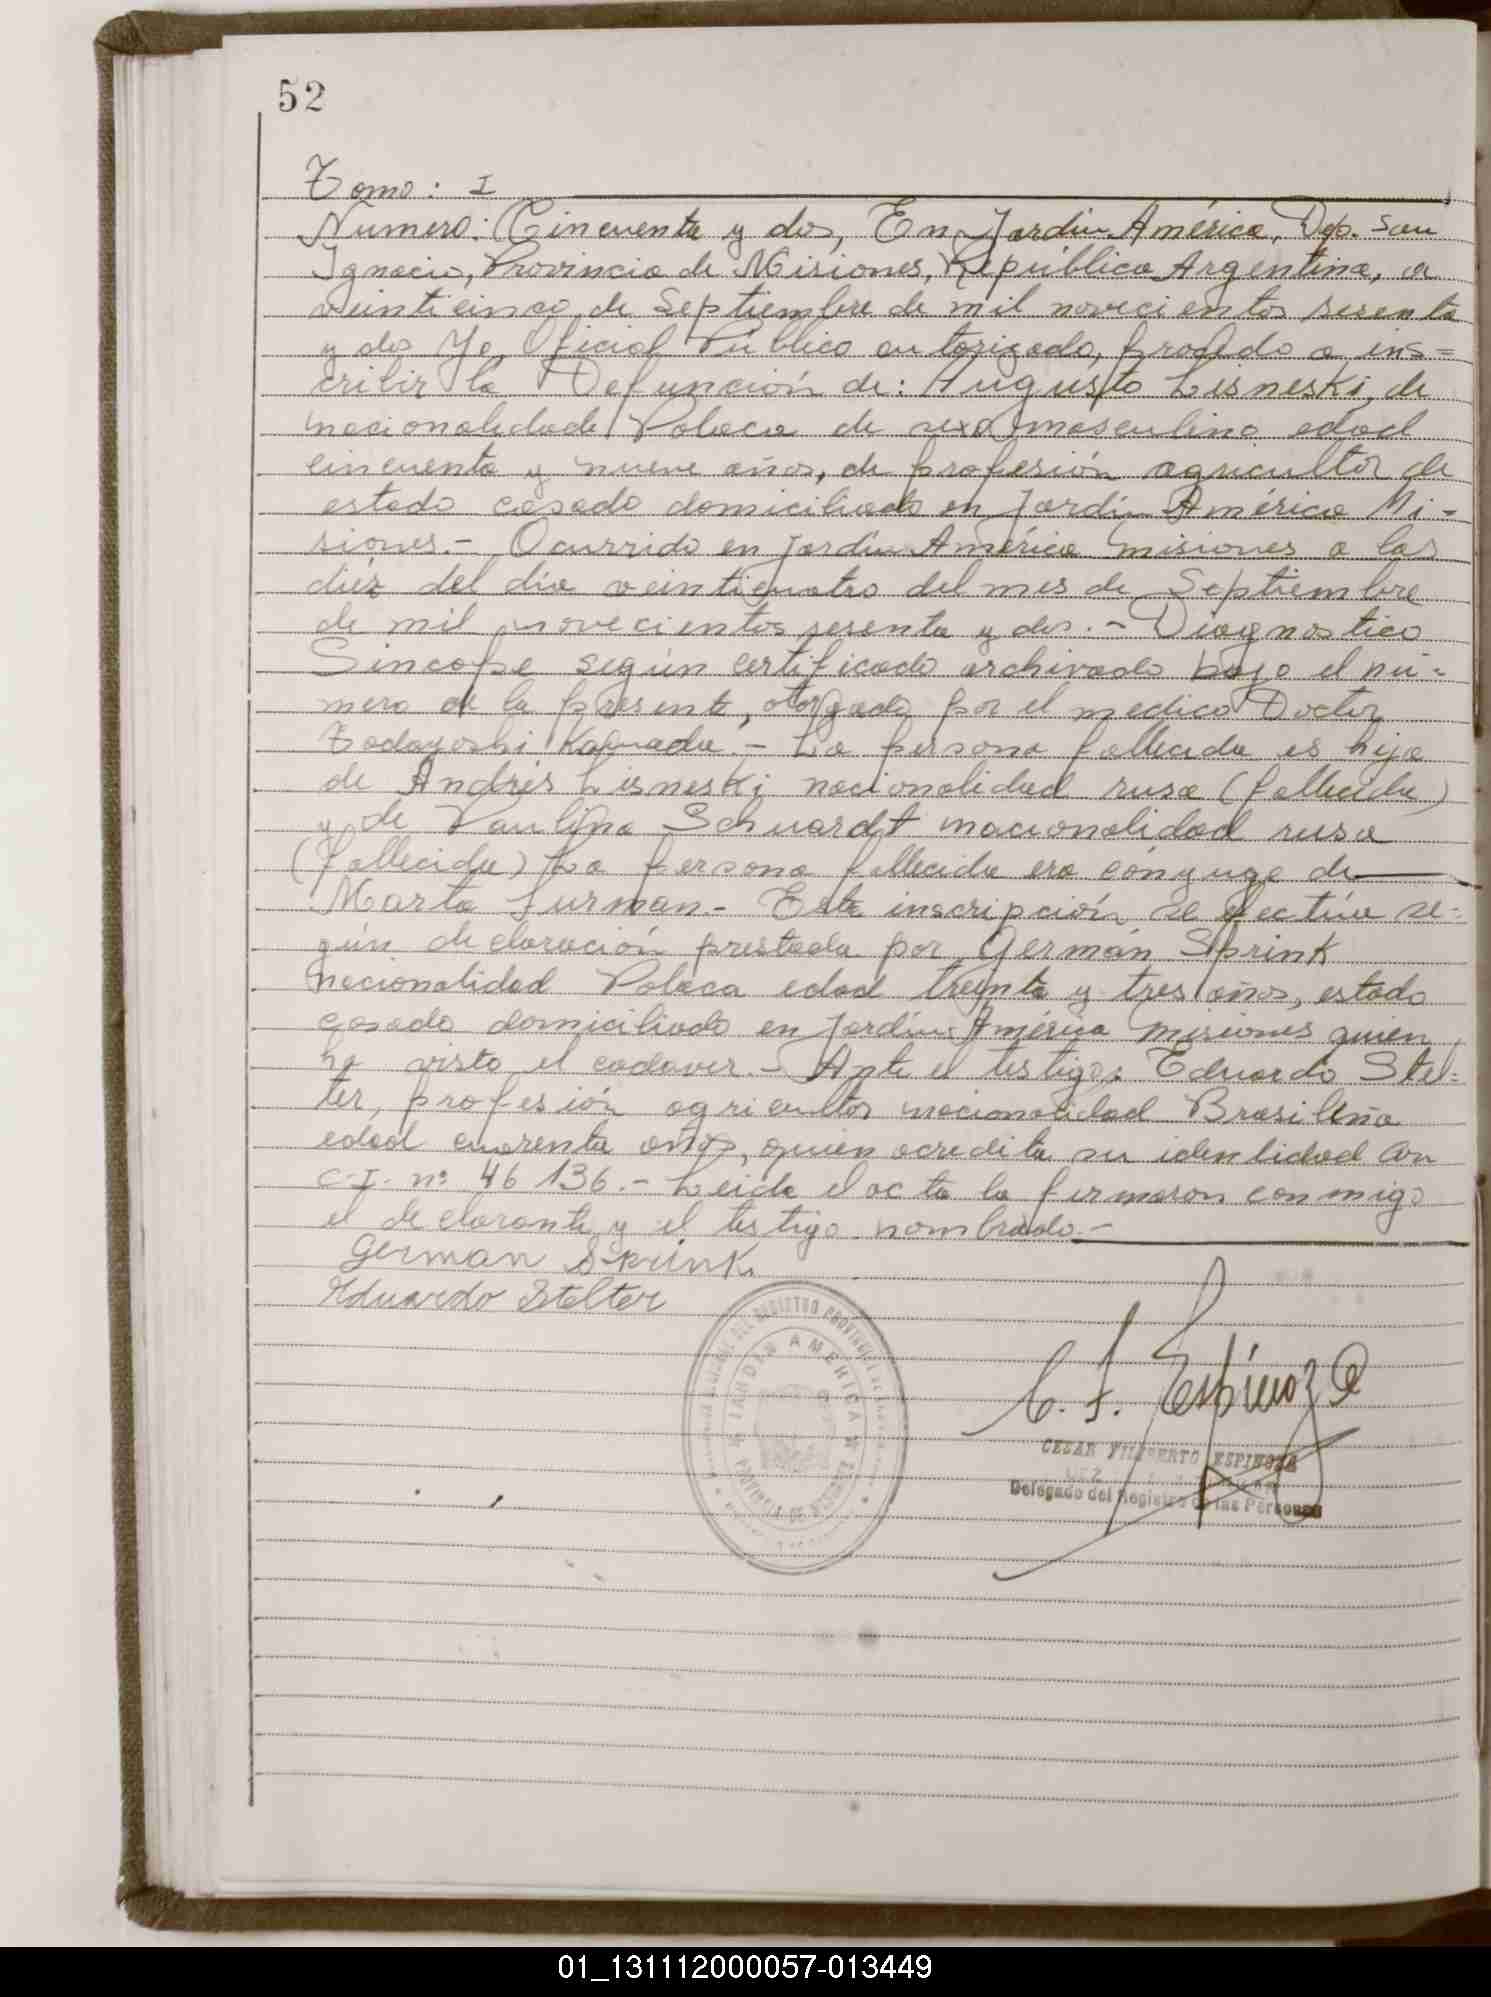 52
Tomo: I
Numero: Cincuenta y dos, En Jardín América, Dep. San
Ignacio, Provincia de Misiones, República Argentina, a
veinticinco de Septiembre de mil novecientos sesenta
y dos Yo, Oficial Público autorizado, procedo a ins=
cribir la Defunción de: Augusto Lisneski, de
nacionalidad Polaca de sexo masculino edad
cincuenta y nueve años, de profesión agricultor de
estado casado domiciliado en Jardín América Mi-
siones.- Ocurrido en Jardín América Misiones a las
diéz del día veinticuatro del mes de Septiembre
de mil novecientos sesenta y dos.- Diagnostico
Sincope según certificado archivado bajo el nú-
mero de la presente, otorgado por el medico Doctor
Tadayoshi .- La persona fallecida es hija
de Andrés Lisneski nacionalidad rusa (fallecida)
y de Paulina Schuardt nacionalidad rusa
(fallecida) La persona fallecida era cónyuge de
Marta Lurman.- Esta inscripción se efectúa se-
gún declaración prestada por Germán Sprink
nacionalidad Polaca edad treinta y tres años, estado
casado domiciliado en Jardín América Misiones quien
ha visto el cadaver.- Ante el testigo: Eduardo Stel-
ter, profesión agricultor nacionalidad Brasileña
edad cuarenta años, quien acredita su identidad con
C.I. nº 46136.- Leida el acta la firmaron conmigo
el declarante y el testigo nombrado.-
German Sprink
Eduardo Stelter
JARDIN AMERICA
PROVINCIA DE MISIONES
C. F. Espinoza
CESAR FILIBERTO ESPINOZA
Delegado del Registro de las Personas
01_131112000057-013449